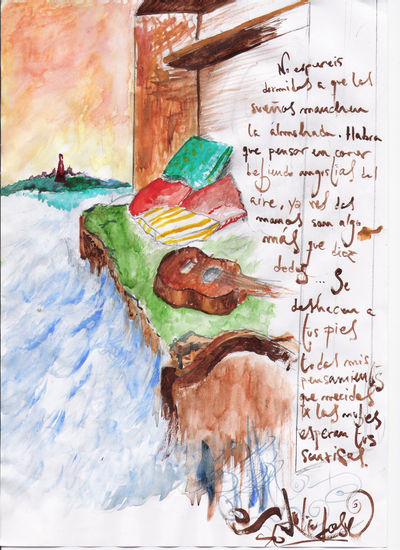 No espereis
dormidos a que los
sueños manchen
la almohada. Habra
que pensar en correr
bebiendo angustias del
aire, ya ves dos
manos son algo
más que diez
dedos ... Se
deshacen a
tus pies
todos mis
pensamientos
que mecidos
x las nubes
esperan tus
sonrisas.
Jose